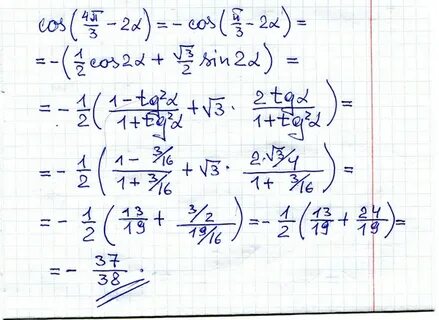 cos(4π/3 − 2α) = − cos(π/3 − 2α) =
= −(1/2 cos2α + √3/2 sin2α) =
= − 1/2 ( (1 − tg²α)/(1 + tg²α) + √3 · (2tgα)/(1 + tg²α) ) =
= − 1/2 ( (1 − 3/16)/(1 + 3/16) + √3 · (2·√3/4)/(1 + 3/16) ) =
= − 1/2 ( 13/19 + (3/2)/(19/16) ) = − 1/2 ( 13/19 + 24/19 ) =
= − 37/38 .